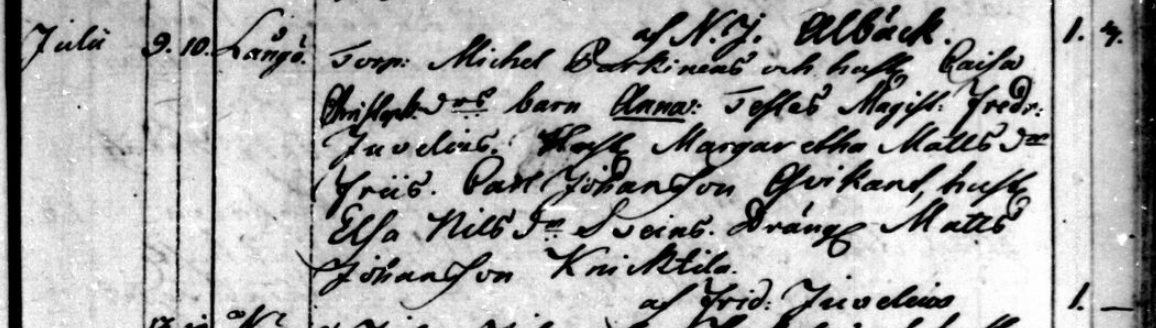 af N. J. Albäck. 1. 4.
Julii 9. 10. Långö. Torp: Michel Parkinens och hust Caisa
Christoph: drs barn Anna: Testes Magist: Fredr:
Juvelius. Hust Margaretha Matts dr
Friis. Carl Johansson Qvikant, hust
Elsa Nils dr Sveins. Dräng Matts
Johansson Knicktila.
af Frid: Juvelius 1. —